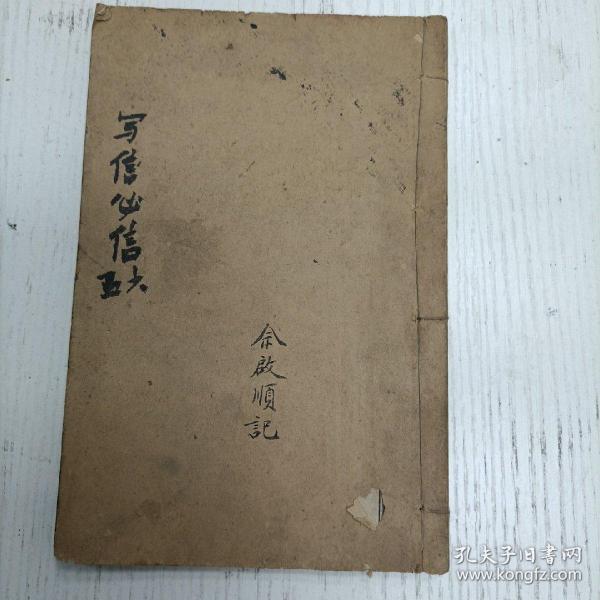 写信必信
五六
佘啟順記
孔夫子旧书网
www.kongfz.com